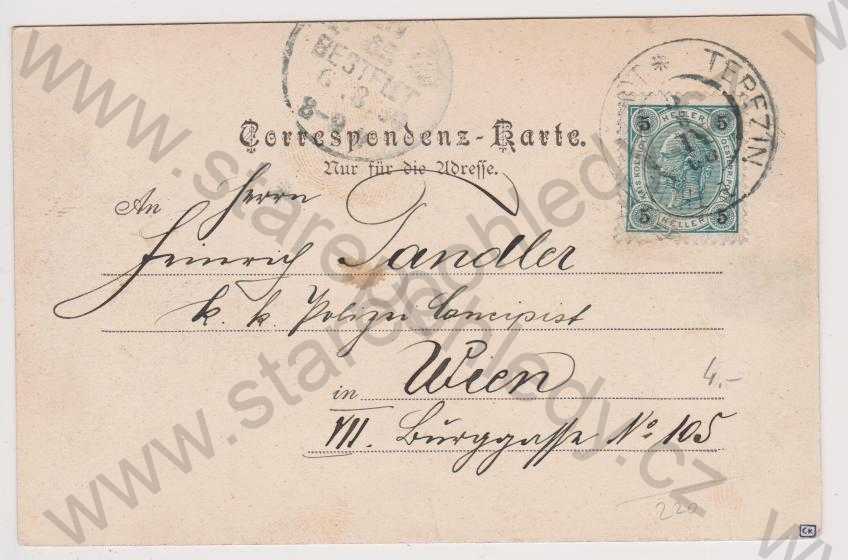 BESTELLT
TEREZIN
5 HELLER 5
5 HELLER 5
Correspondenz-Karte.
Nur für die Adresse.
An Herrn
Heinrich Sandler
k. k. Polizei Concipist
in Wien
VII. Burggasse No 105
4.-
220
www.starepohledy.cz